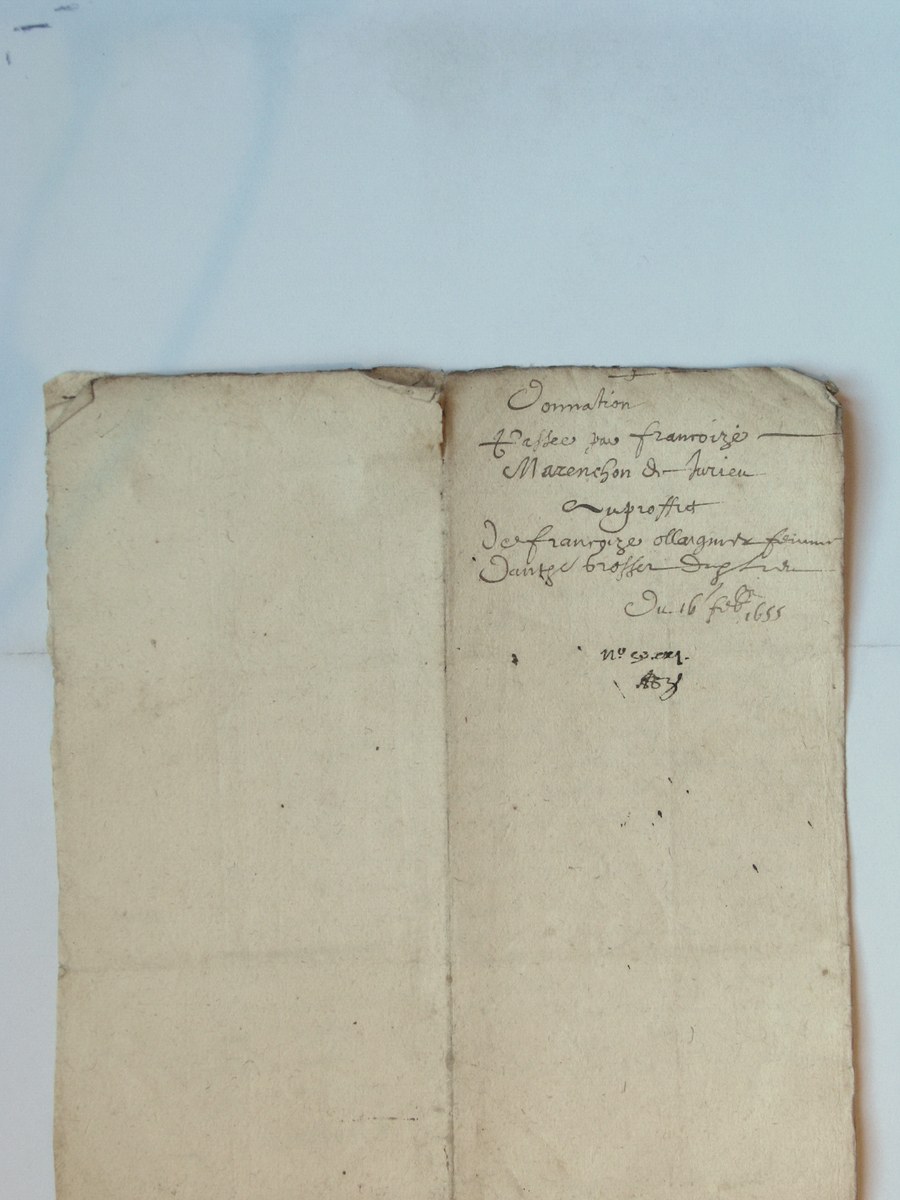 Donnation
Passee par francoize
Marenchon de Jurieu
Auproffit
De francoize ollagnier femme
Danthe brosser
Du 16 feb 1655